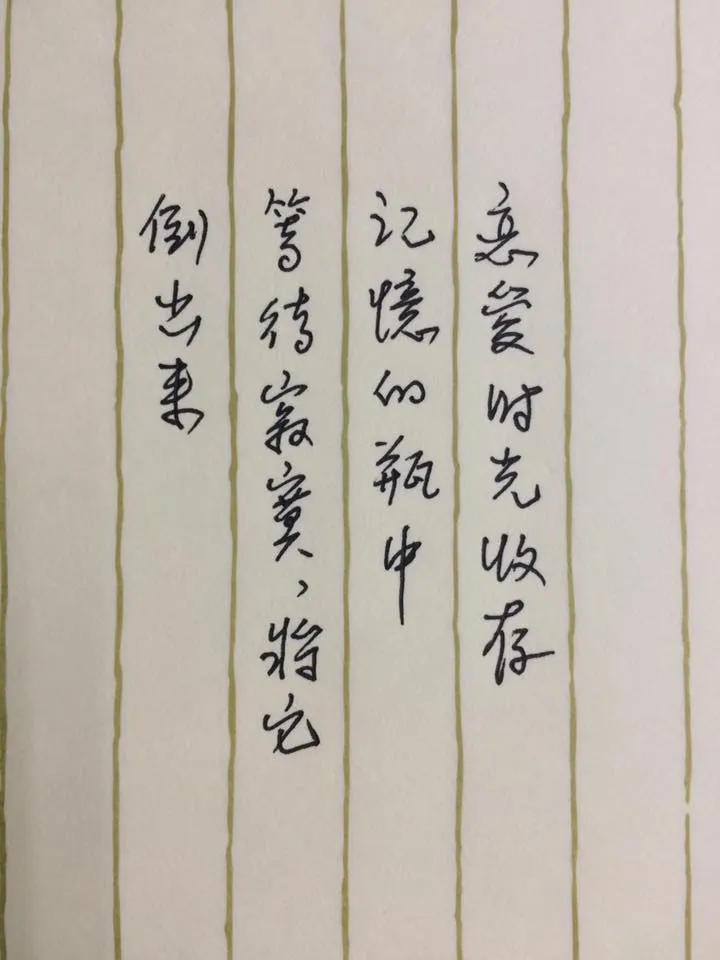 恋愛时光收存
记憶的瓶中
等待寂寞，将它
倒出来